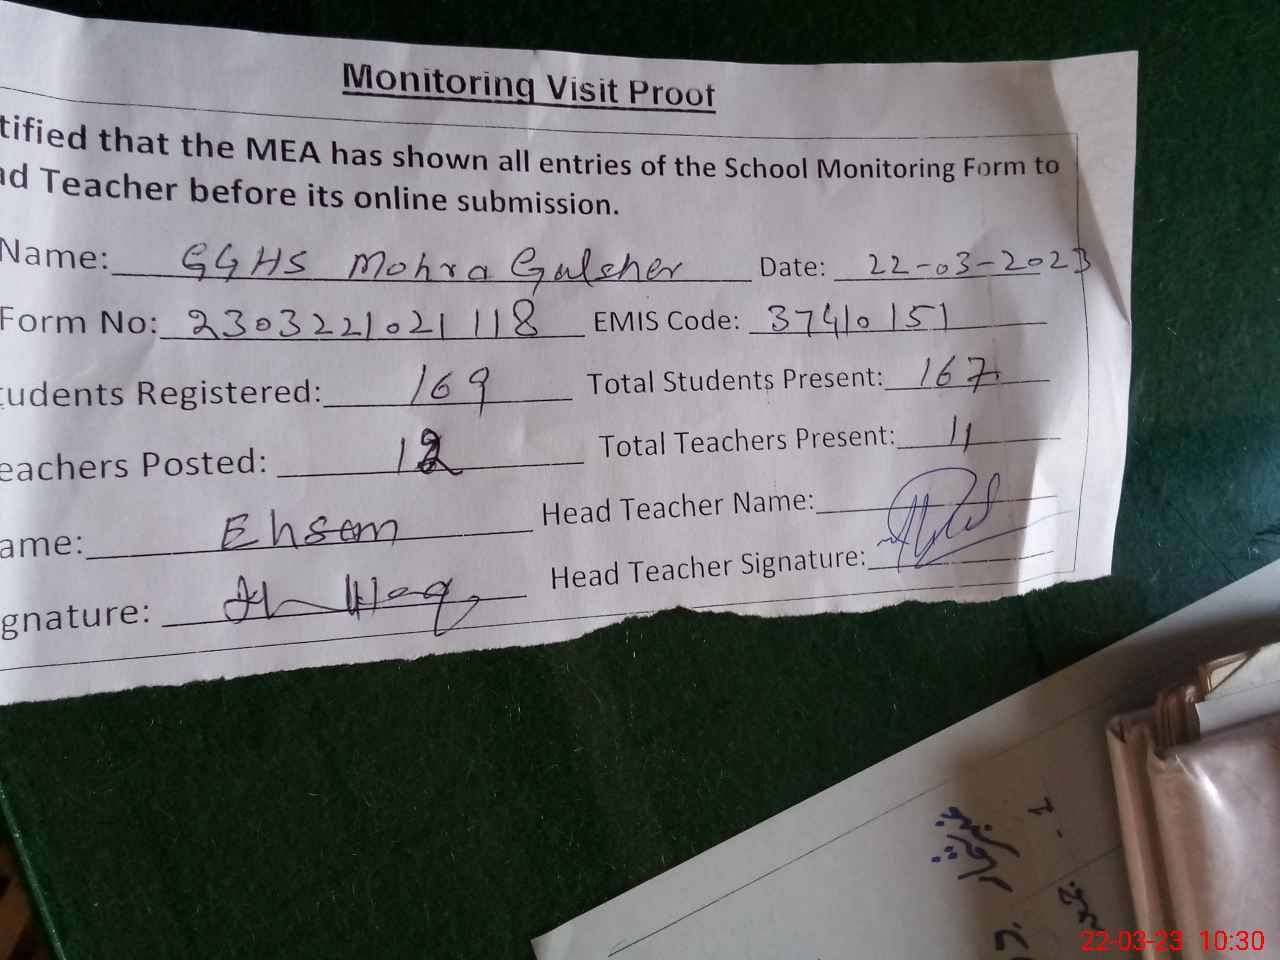 Monitoring Visit Proof
tified that the MEA has shown all entries of the School Monitoring Form to
ad Teacher before its online submission.
Name: GGHS Mohra Gulsher Date: 22-03-2023
Form No: 2303221021118 EMIS Code: 37410151
tudents Registered: 169 Total Students Present: 167
eachers Posted: 12 Total Teachers Present: 11
ame: Ehsan Head Teacher Name:
gnature: Head Teacher Signature:
22-03-23 10:30